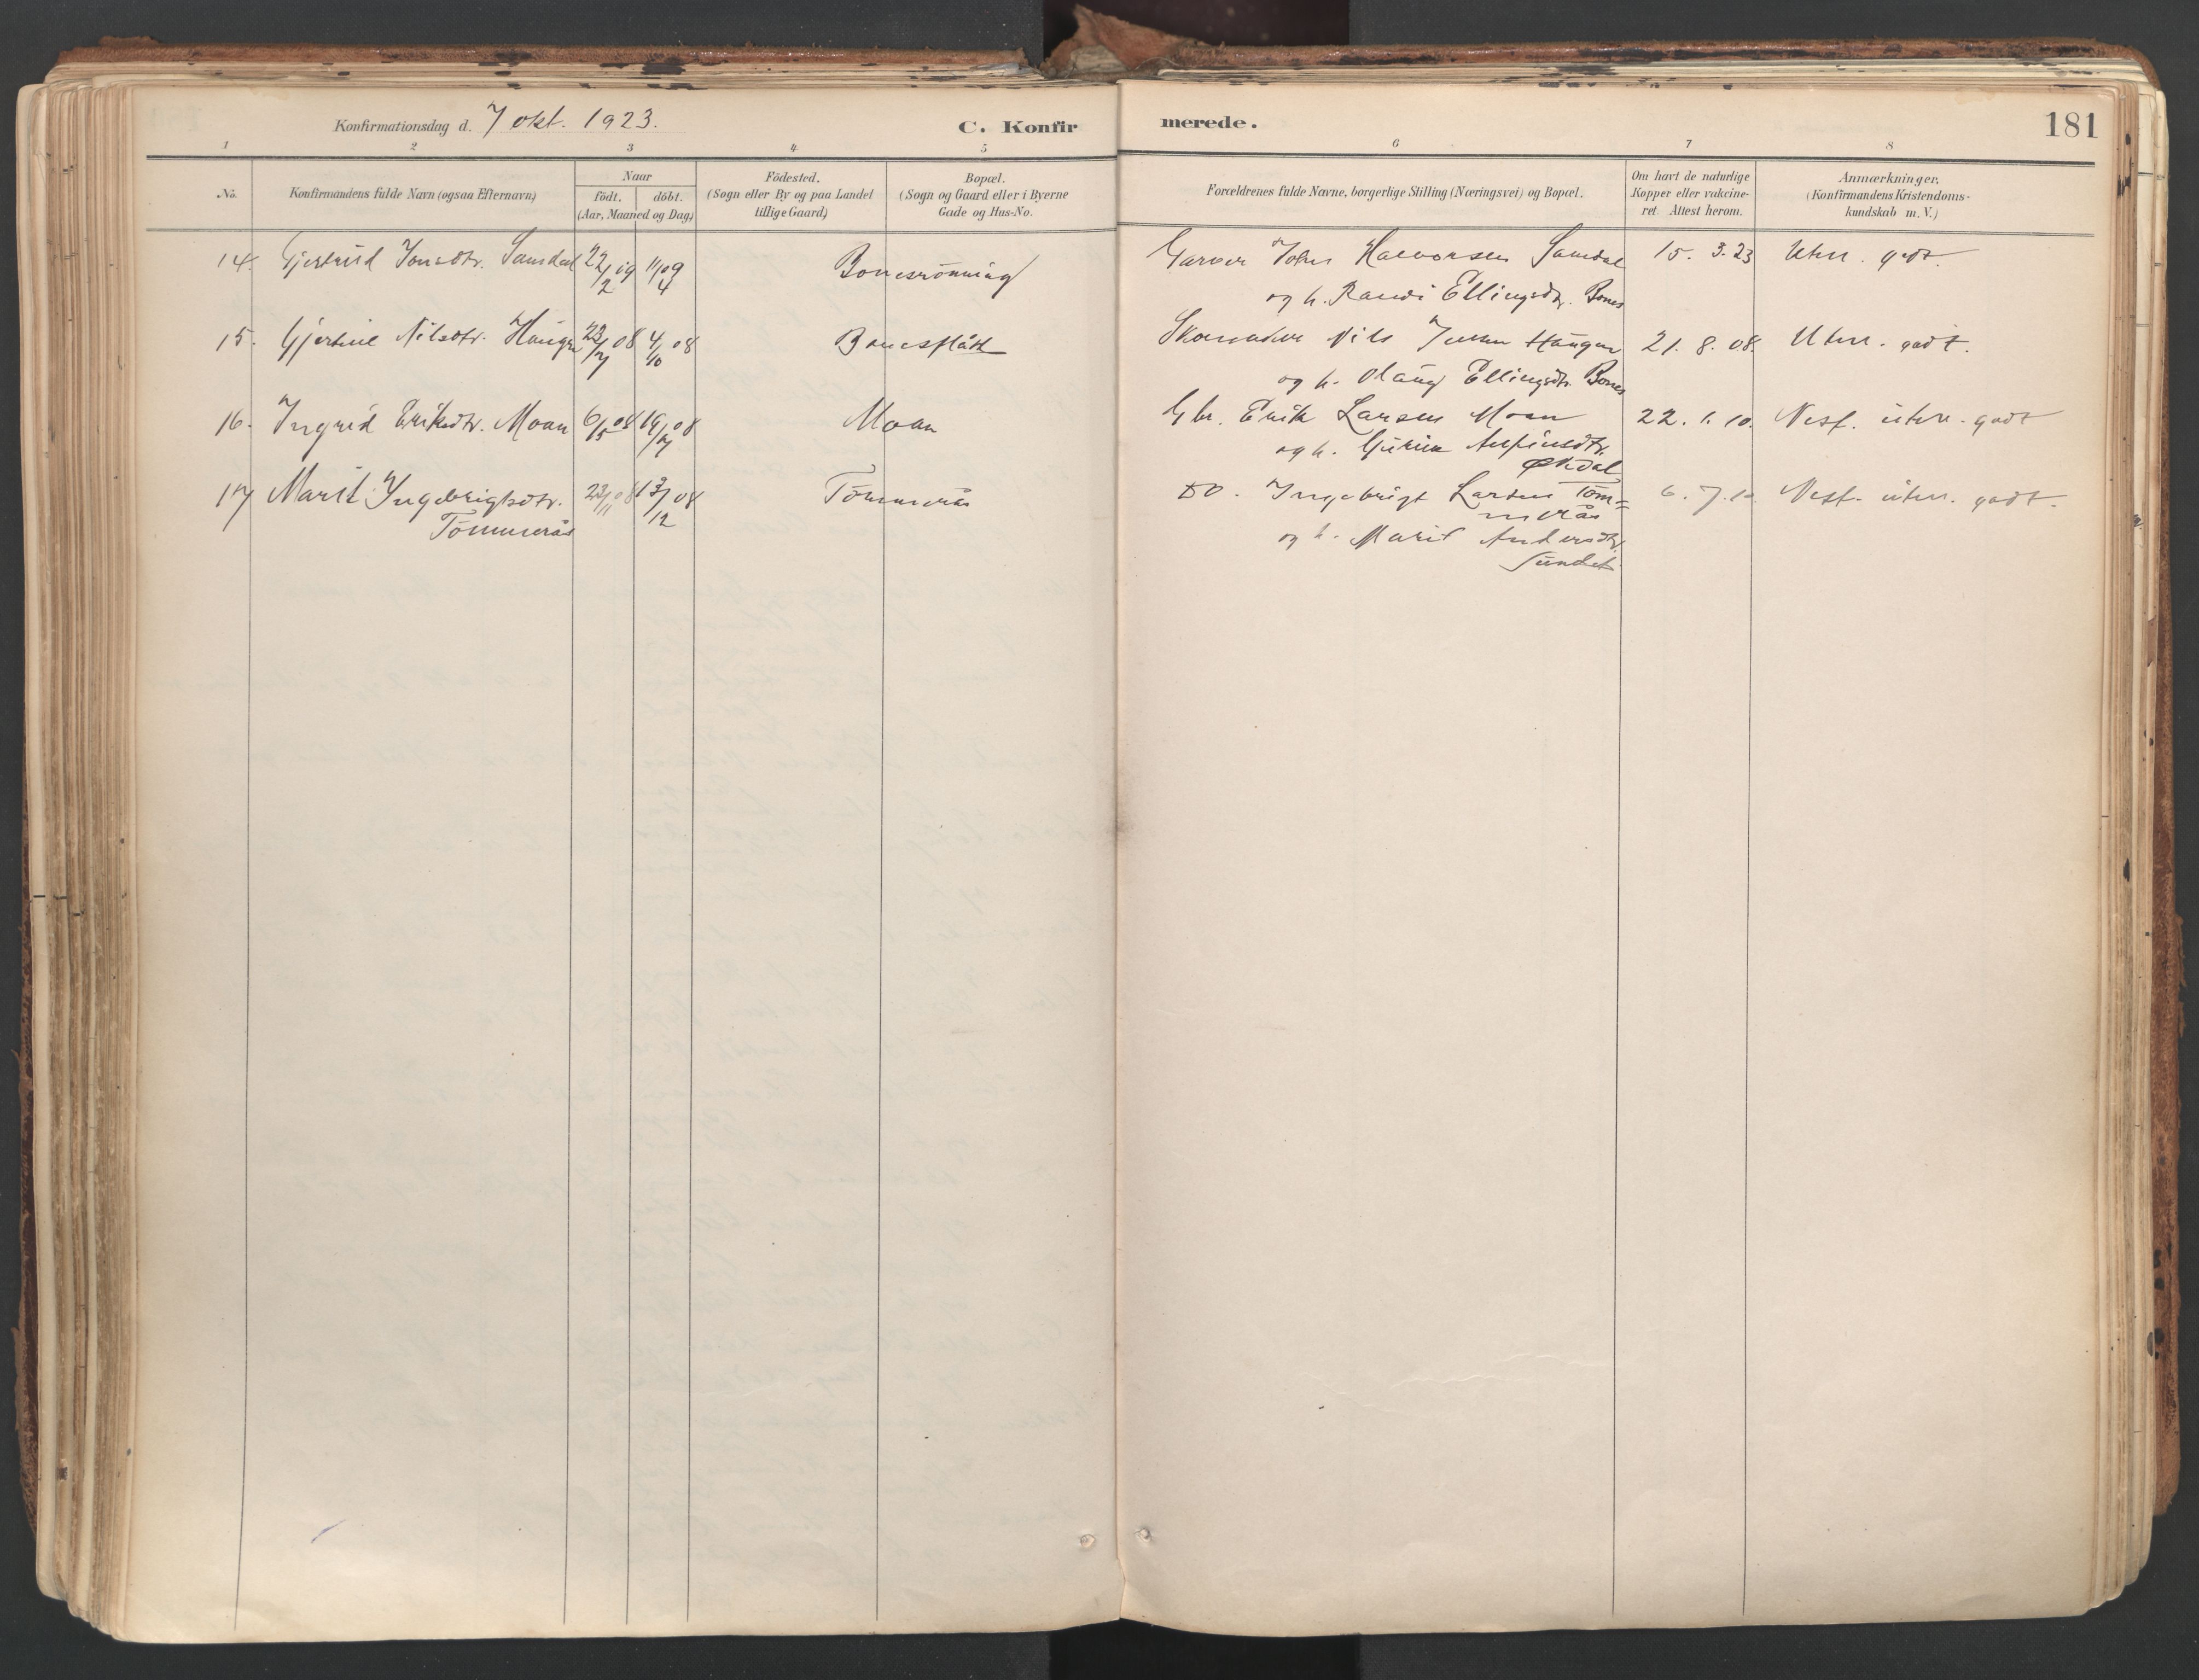 Konfirmationsdag d. 7 okt. 1923.
C. Konfirmerede.
181
1 2 3 4 5 6 7 8
No.
Konfirmandens fulde Navn (ogsaa Efternavn)
Naar
födt. döbt.
(Aar, Maaned og Dag)
Födested.
(Sogn eller By og paa Landet
tillige Gaard)
Bopæl.
(Sogn og Gaard eller i Byerne
Gade og Hus-No.
Forældrenes fulde Navne, borgerlige Stilling (Næringsvei) og Bopæl.
Om havt de naturlige
Kopper eller vakcine-
ret. Attest herom.
Anmærkninger.
(Konfirmandens Kristendoms-
kundskab m. V.)
14. Gjertrud Jonsdtr. Samdal 22/2 09 11/4 09 Bonesrönning Garver John Halvorsen Samdal 15. 3. 23 Utm. godt.
og h. Randi Ellingsdtr. Bones
15. Gjertine Nilsdtr. Haugen 23/7 08 4/10 08 Bonesflått Skomaker Nils Jensen Haugen 21. 8. 08. Utm. godt.
og h. Olaug Ellingsdtr. Bones
16. Ingrid Eriksdtr. Moan 6/5 08 19/7 08 Moan Gbr. Erik Larsen Moan 22. 1. 10. Nest. utm. godt
og h. Guruin Arfinsdtr.
Økdal
17 Marit Ingebrigtsdtr. 23/11 08 13/12 08 Tömmerås Do. Ingebrigt Larsen Töm=
6. 7. 10 Nest. utm. godt.
Tömmerås
merås
og h. Marit Andersdtr.
Sundet